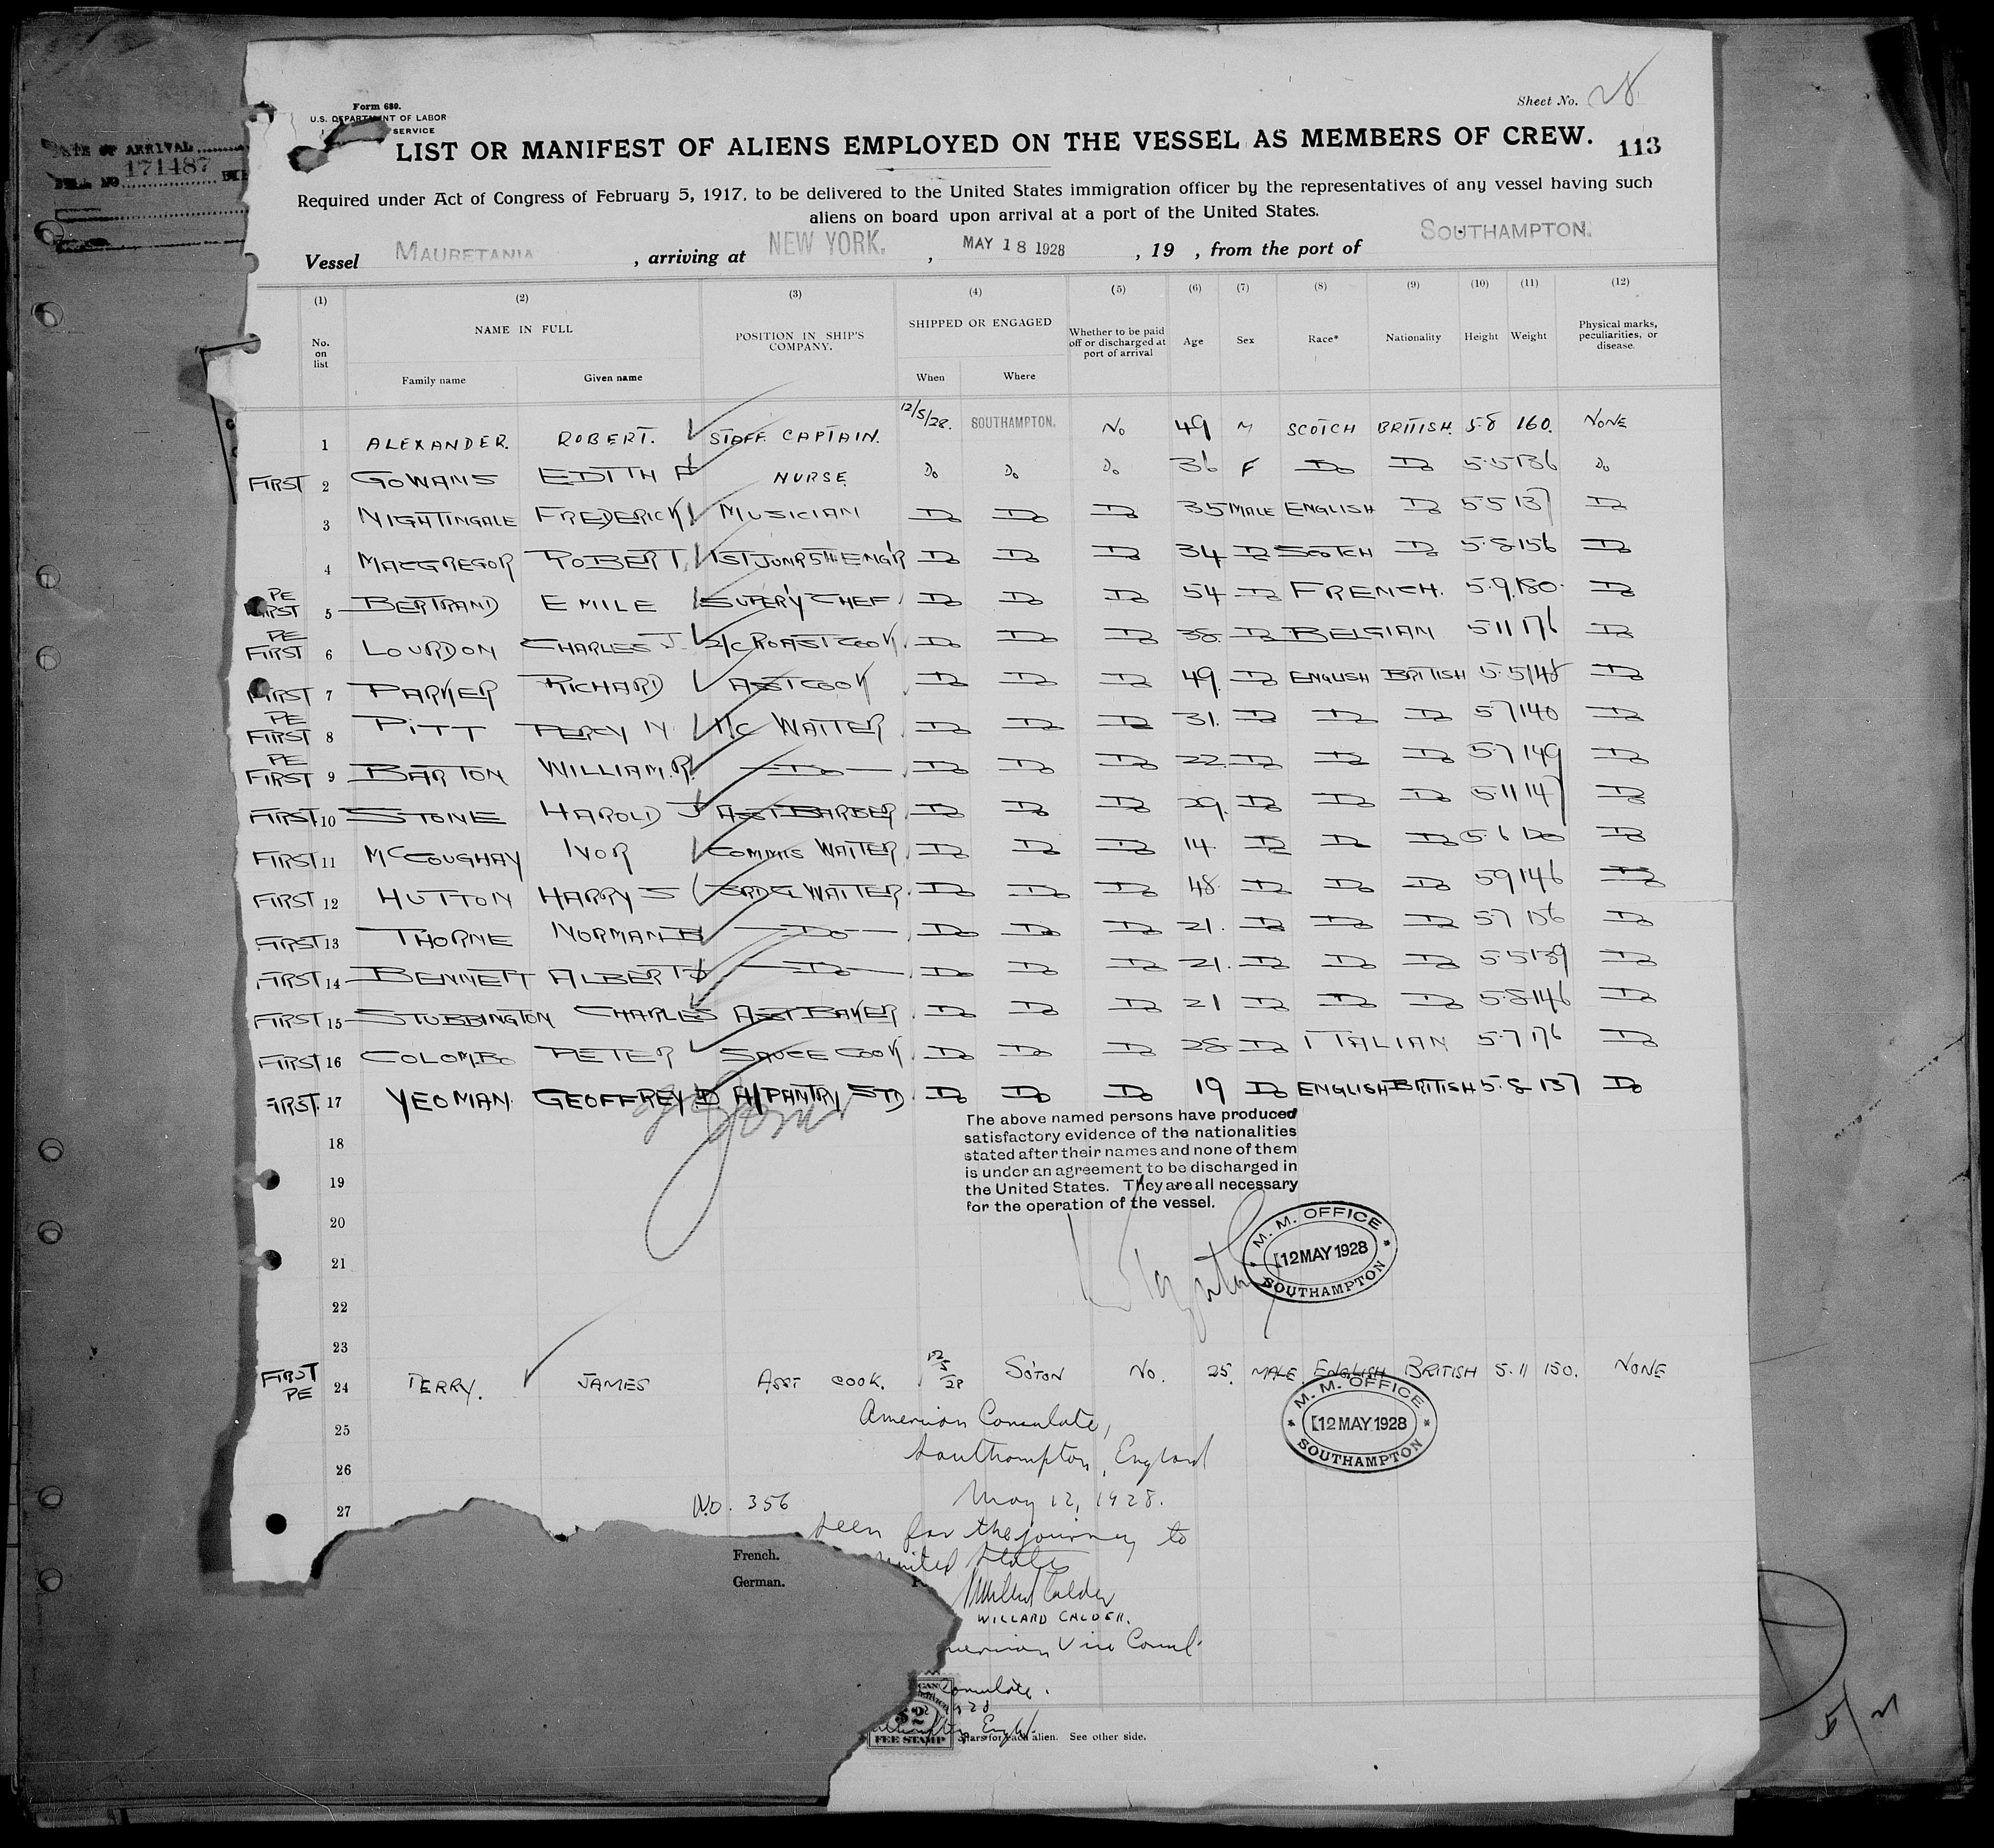 Form 680.
U.S. DEPARTMENT OF LABOR
SERVICE
Sheet No. 28
LIST OR MANIFEST OF ALIENS EMPLOYED ON THE VESSEL AS MEMBERS OF CREW.
113
DATE OF ARRIVAL
171487
Required under Act of Congress of February 5, 1917, to be delivered to the United States immigration officer by the representatives of any vessel having such
aliens on board upon arrival at a port of the United States.
Vessel MAURETANIA , arriving at NEW YORK. , MAY 18 1928 , 19 , from the port of SOUTHAMPTON.
(1) (2) (3) (4) (5) (6) (7) (8) (9) (10) (11) (12)
No. on list NAME IN FULL POSITION IN SHIP'S COMPANY. SHIPPED OR ENGAGED Whether to be paid off or discharged at port of arrival Age Sex Race* Nationality Height Weight Physical marks, peculiarities, or disease.
Family name Given name When Where
1 ALEXANDER. ROBERT. STAFF CAPTAIN. 12/5/28. SOUTHAMPTON. No 49 M SCOTCH BRITISH. 5.8 160. NONE
FIRST 2 GOWANS EDITH A NURSE. Do Do Do 36 F Do Do 5.5 136 Do
3 NIGHTINGALE FREDERICK MUSICIAN Do Do Do 35 MALE ENGLISH Do 5.5 137 Do
4 MACGREGOR ROBERT. 1ST JUNR 5TH ENG'R Do Do Do 34 Do SCOTCH Do 5.8 156 Do
PE FIRST 5 BERTRAND EMILE SUPER'Y CHEF Do Do Do 54 Do FRENCH. 5.9. 180. Do
PE FIRST 6 LOURDON CHARLES J. 2/C ROAST COOK Do Do Do 38 Do BELGIAN 5 11 176 Do
FIRST 7 PARKER RICHARD ASST COOK Do Do Do 49. Do ENGLISH BRITISH 5.5 148 Do
PE FIRST 8 PITT PERCY N WAITER Do Do Do 31. Do Do Do 5 7 140 Do
PE FIRST 9 BARTON WILLIAM. R. Do Do Do Do 22. Do Do Do 5.7 149 Do
FIRST. 10 STONE HAROLD J ASST BARBER Do Do Do 29. Do Do Do 5.11 147 Do
FIRST 11 McCOUGHAY IVOR COMMIS WAITER Do Do Do 14 Do Do Do 5.6 120 Do
FIRST 12 HUTTON HARRY S BRDG WAITER Do Do Do 48 Do Do Do 5 9 146 Do
FIRST 13 THORNE NORMAN Do Do Do Do 21. Do Do Do 5 7 136 Do
FIRST 14 BENNETT ALBERT Do Do Do Do 21. Do Do Do 5.5 139 Do
FIRST 15 STUBBINGTON CHARLES ASST BAKER Do Do Do 21 Do Do Do 5.8 146 Do
FIRST 16 COLOMBO PETER SAUCE COOK Do Do Do 28 Do ITALIAN 5.7 176 Do
FIRST. 17 YEOMAN. GEOFFREY D A/PANTRY STD Do Do Do 19 Do ENGLISH BRITISH 5.8 137 Do
The above named persons have produced
satisfactory evidence of the nationalities
stated after their names and none of them
is under an agreement to be discharged in
the United States. They are all necessary
for the operation of the vessel.
18
19
20
21
22
23
M. M. OFFICE
12 MAY 1928
SOUTHAMPTON
FIRST PE 24 TERRY. JAMES ASST COOK. 12/5/28 SO'TON No. 25. MALE. ENGLISH BRITISH 5.11 150. NONE
M. M. OFFICE
12 MAY 1928
SOUTHAMPTON
25
26
27
American Consulate,
Southampton, England
No. 356 May 12, 1928.
Seen for the journey to
United States
French.
German.
Willard Calder
WILLARD CALDER.
American Vice Consul.
Consulate.
$2
FEE STAMP
for each alien. See other side.